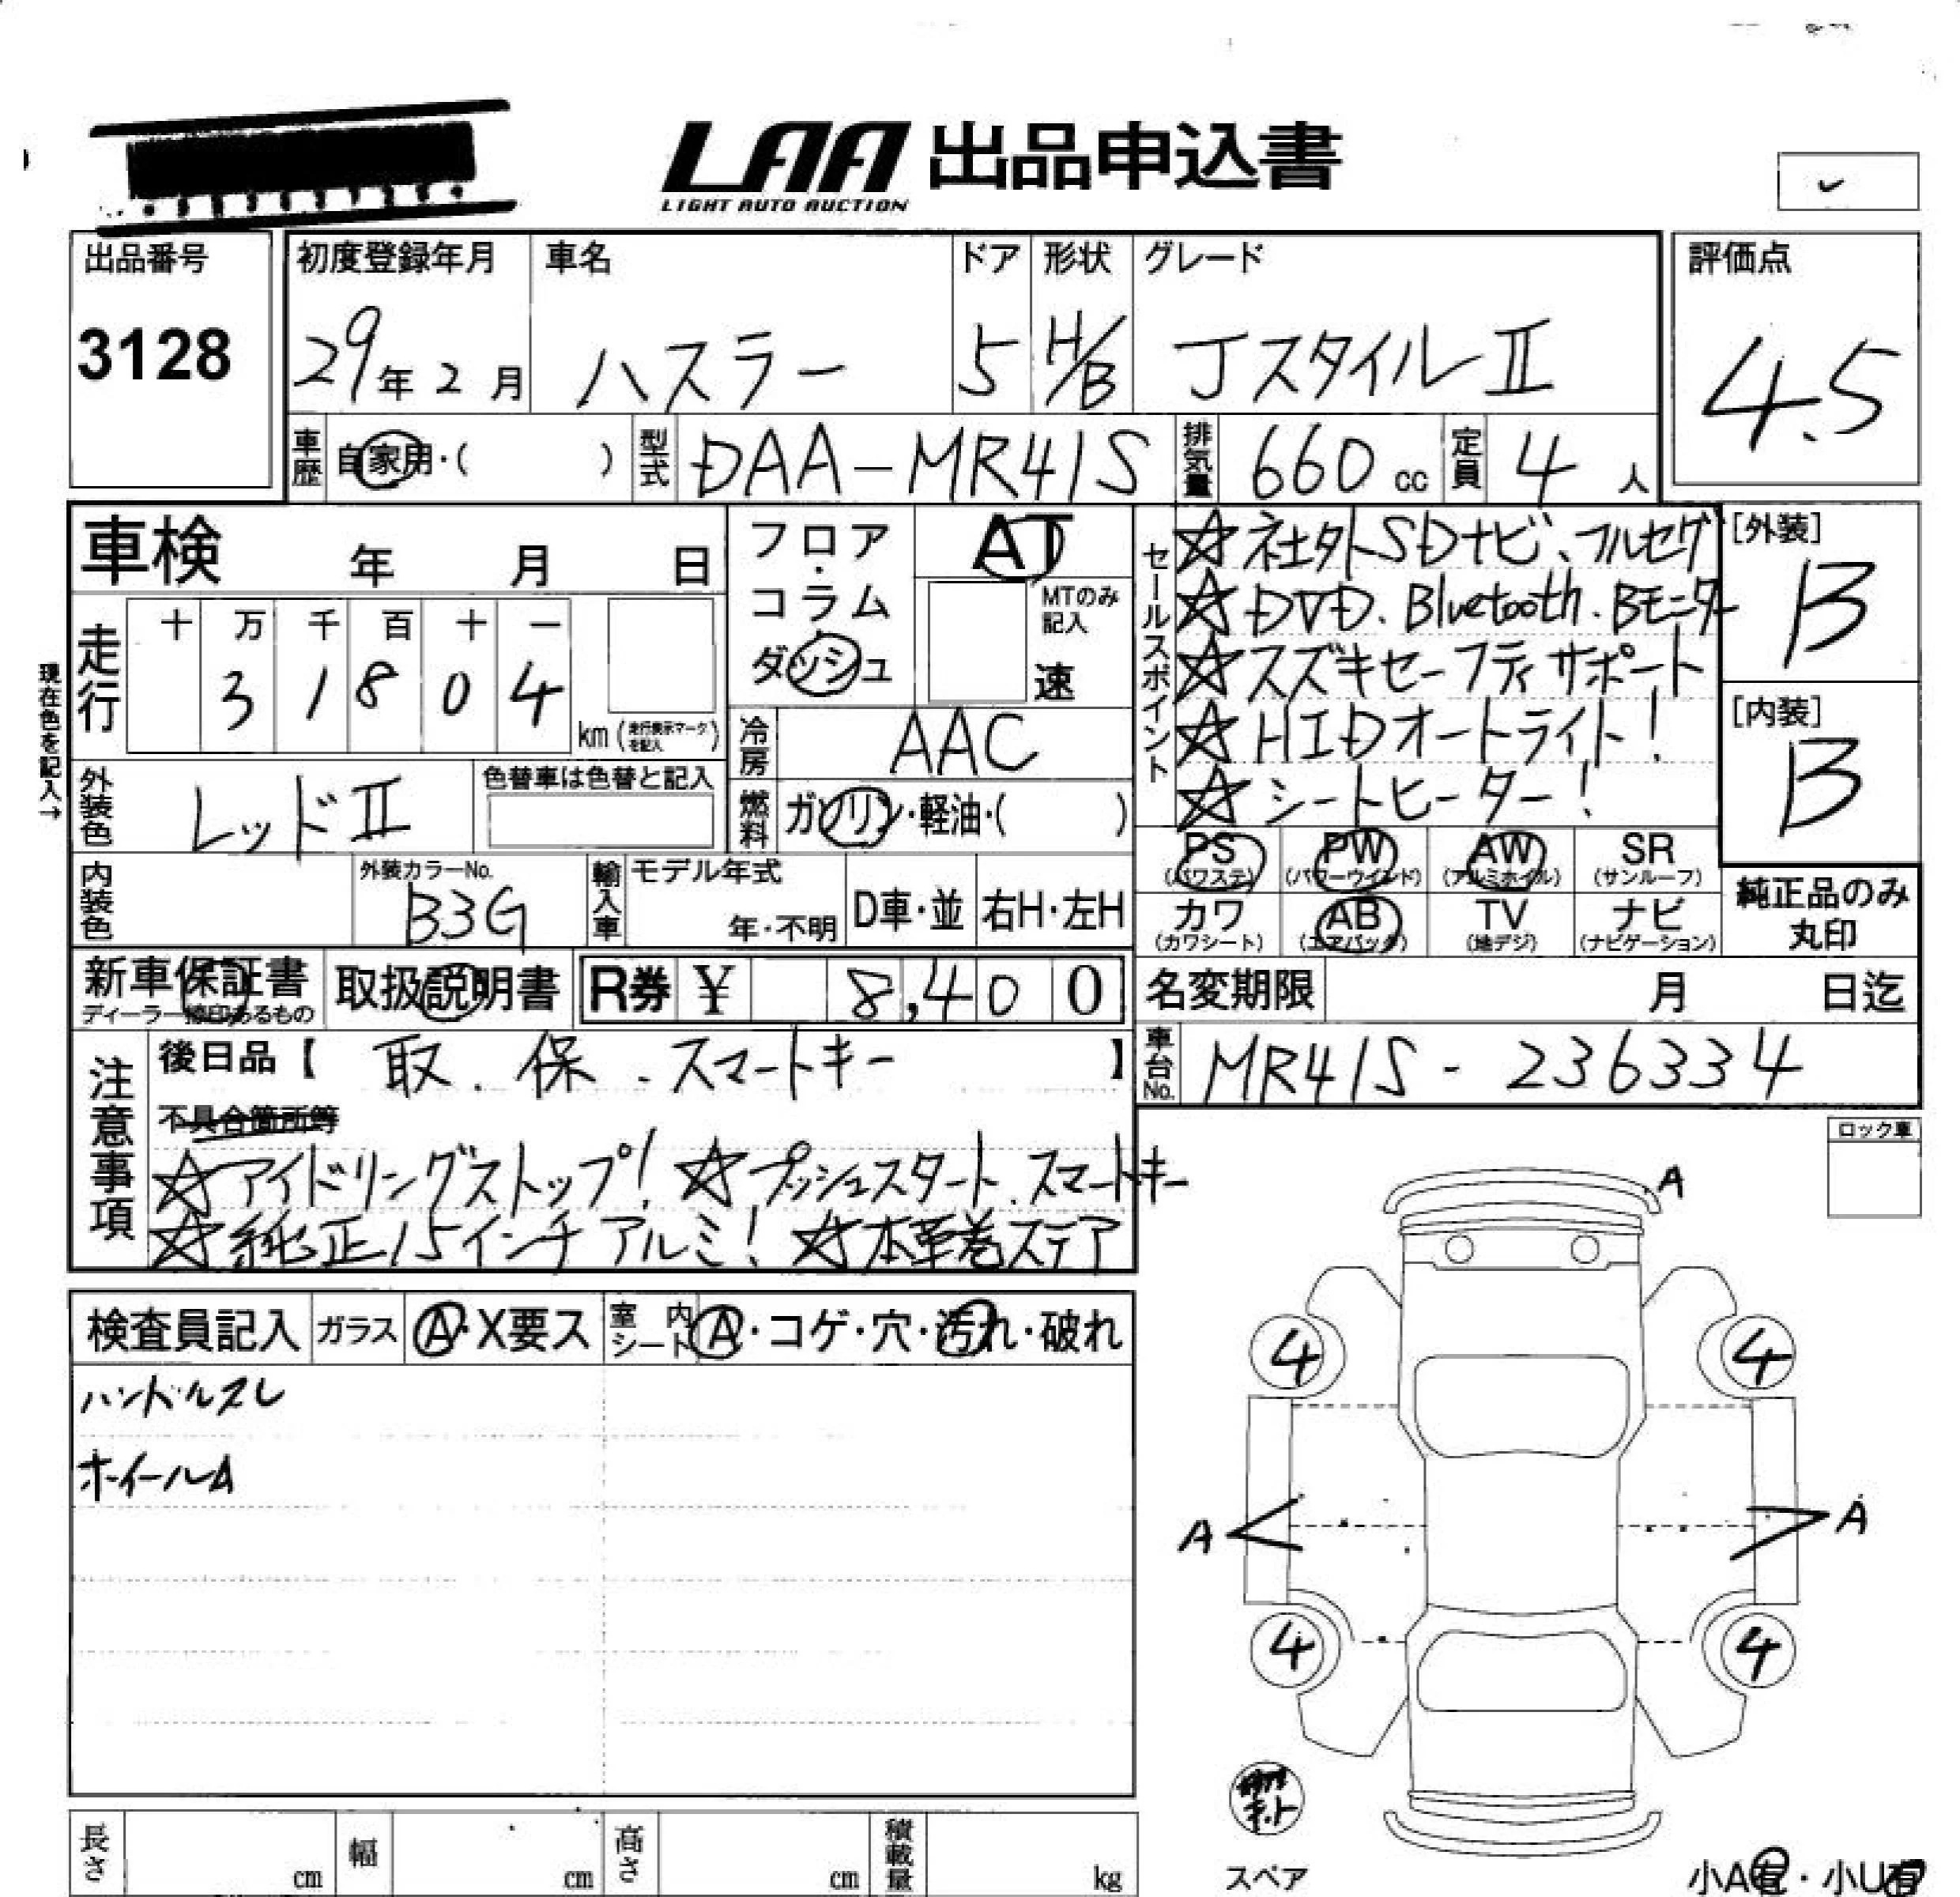 LAA 出品申込書
LIGHT AUTO AUCTION
出品番号
3128
初度登録年月 車名 ドア 形状 グレード
29年2月 ハスラー 5 H/B JスタイルⅡ
評価点
4.5
車歴 自家用・( ) 型式 DAA-MR41S 排気量 660cc 定員 4人
車検 年 月 日
走行 十 万 千 百 十 一
3 1 8 0 4
km (走行表示マークを記入)
現在色を記入→
外装色 レッドⅡ 色替車は色替と記入
内装色 外装カラーNo. B3G
フロア・コラム・ダッシュ
AT
MTのみ記入
速
冷房 AAC
燃料 ガソリン・軽油・( )
輸入車 モデル年式 年・不明 D車・並 右H・左H
セールスポイント
☆社外SDナビ、フルセグ
☆DVD.Bluetooth.Bモニター
☆スズキセーフティサポート
☆HIDオートライト!
☆シートヒーター!
[外装]
B
[内装]
B
PS (パワステ) PW (パワーウインド) AW (アルミホイル) SR (サンルーフ)
カワ (カワシート) AB (エアバッグ) TV (地デジ) ナビ (ナビゲーション)
純正品のみ
丸印
新車保証書
ディーラー捺印あるもの
取扱説明書
R券 ¥ 8,400
名変期限 月 日迄
車台No. MR41S-236334
注意事項
後日品【 取.保.スマートキー 】
不具合箇所等
☆アイドリングストップ! ☆プッシュスタート.スマートキー
☆純正15インチアルミ! ☆本革巻ステア
ロック車
検査員記入 ガラス A・X要ス 室内シート A・コゲ・穴・汚れ・破れ
ハンドルスレ
ホイールA
A
4 4
A A
4 4
スペア
小A有・小U有
長さ cm 幅 cm 高さ cm 積載量 kg